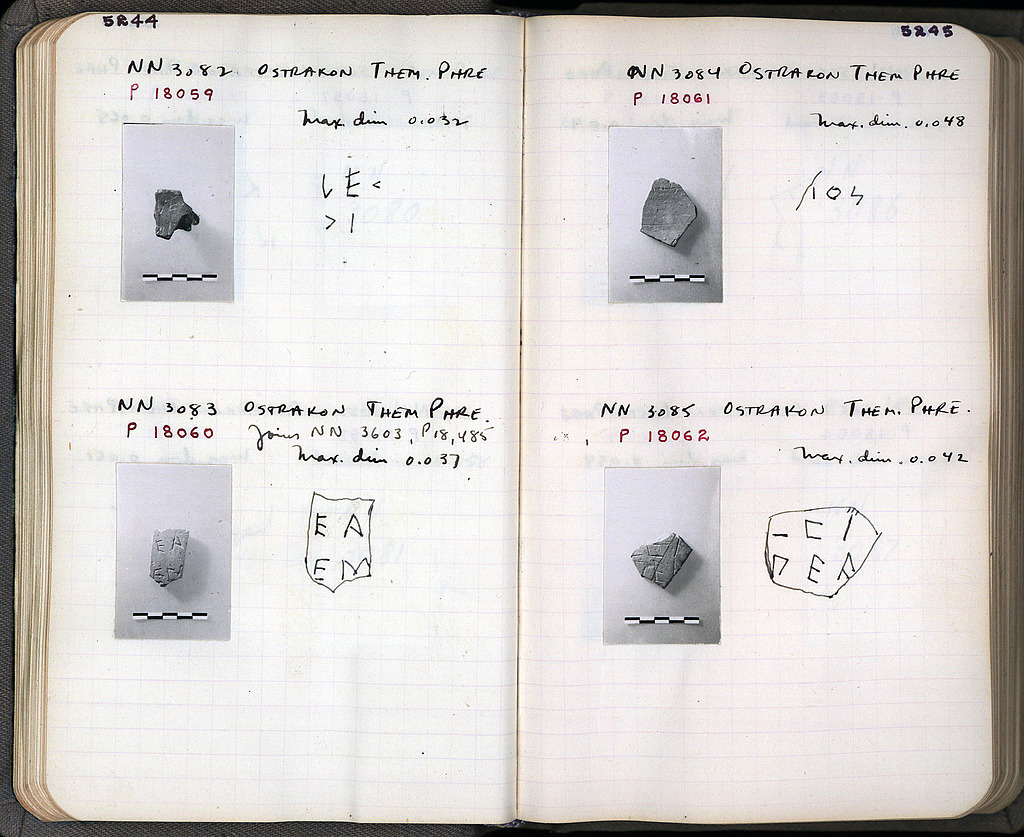 5244
NN 3082 OSTRAKON THEM. PHRE
P 18059
Max. dim 0.032
E <
> I
NN 3083 OSTRAKON THEM PHRE.
P 18060 Joins NN 3603, P18,485
Max. dim 0.037
E A
E M
E A
E M
5245
NN 3084 OSTRAKON THEM PHRE
P 18061
Max. dim. 0.048
NN 3085 OSTRAKON THEM. PHRE.
P 18062
Max. dim. 0.042
E A